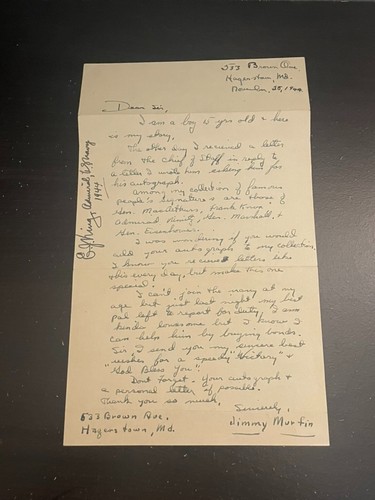 533 Brown Ave.
Hagerstown, Md.
November 25, 1944
Dear Sir,
I am a boy 15 yrs old & here
is my story.
The other day I received a letter
from the Chief of Staff in reply to
a letter I wrote him asking him for
his autograph.
Among my collection of famous
people's signatures are those of
Gen. MacArthur, Frank Knox,
Admiral Nimitz, Gen. Marshall, &
Gen. Eisenhower.
I was wondering if you would
add your autograph to my collection.
I know you receive letters like
this every day, but make this one
special.
I can't join the navy at my
age but just last night my best
Pal left to report for duty. I am
kinda lonesome but I know I
can help him by buying bonds.
Sir, I send you my sincere best
wishes for a speedy "Victory" &
"God Bless You".
Dont Forget - Your autograph &
a personal letter if possible.
Thank you so much,
Sincerely,
Jimmy Murfin
533 Brown Ave.
Hagerstown, Md.
E J King, Admiral, U.S. Navy
1944